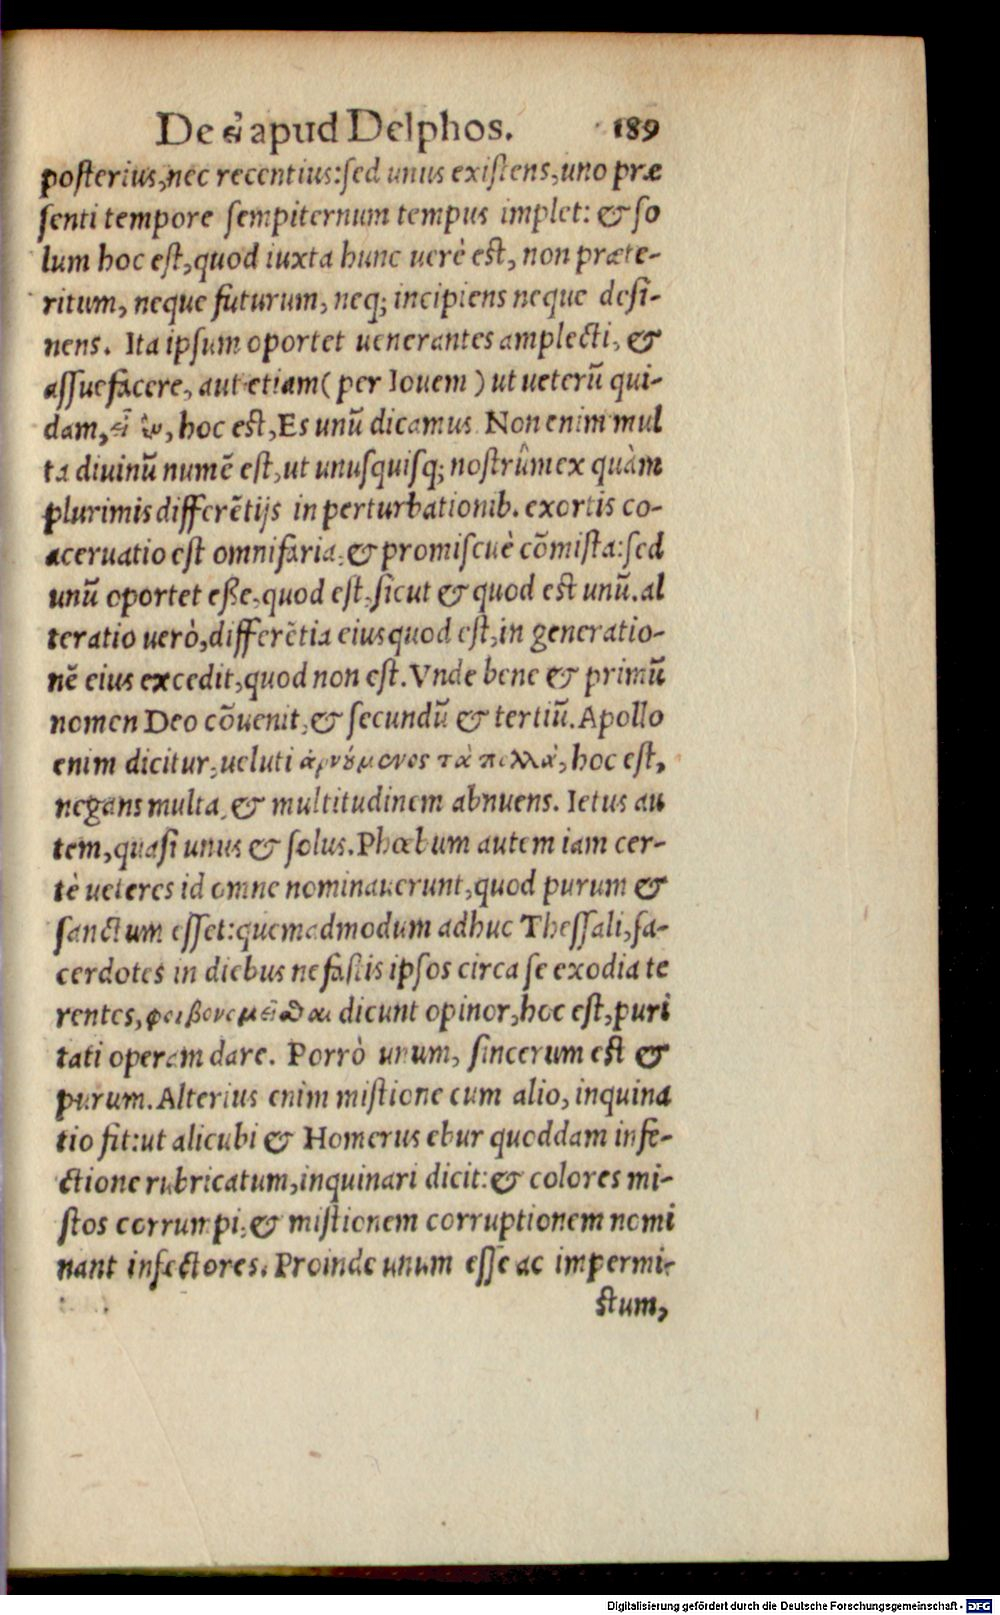 De εἰ apud Delphos. 189
posterius, nec recentius: sed unus existens, uno præ
senti tempore sempiternum tempus implet: & so
lum hoc est, quod iuxta hunc uerè est, non præte-
ritum, neque futurum, neq; incipiens neque desi-
nens. Ita ipsum oportet uenerantes amplecti, &
assuefacere, aut etiam ( per Iouem ) ut ueterū qui-
dam, εἶ ἓν, hoc est, Es unū dicamus. Non enim mul
ta diuinū numē est, ut unusquisq; nostrûm ex quàm
plurimis differētijs in perturbationib. exortis co-
aceruatio est omnifaria, & promiscuè cōmista: sed
unū oportet esse, quod est, sicut & quod est unū. al
teratio uerò, differētia eius quod est, in generatio-
nē eius excedit, quod non est. Vnde bene & primū
nomen Deo cōuenit, & secundū & tertiū. Apollo
enim dicitur, ueluti ἀρνούμενος τὰ πολλὰ, hoc est,
negans multa, & multitudinem abnuens. Ietus au
tem, quasi unus & solus. Phœbum autem iam cer-
tè ueteres id omne nominauerunt, quod purum &
sanctum esset: quemadmodum adhuc Thessali, sa-
cerdotes in diebus nefastis ipsos circa se exodia te
rentes, φοιβονομεῖσθαι dicunt opinor, hoc est, puri
tati operam dare. Porrò unum, sincerum est &
purum. Alterius enim mistione cum alio, inquina
tio fit: ut alicubi & Homerus ebur quoddam infe-
ctione rubricatum, inquinari dicit: & colores mi-
stos corrumpi, & mistionem corruptionem nomi
nant infectores. Proinde unum esse ac impermi-
stum,
Digitalisierung gefördert durch die Deutsche Forschungsgemeinschaft - DFG